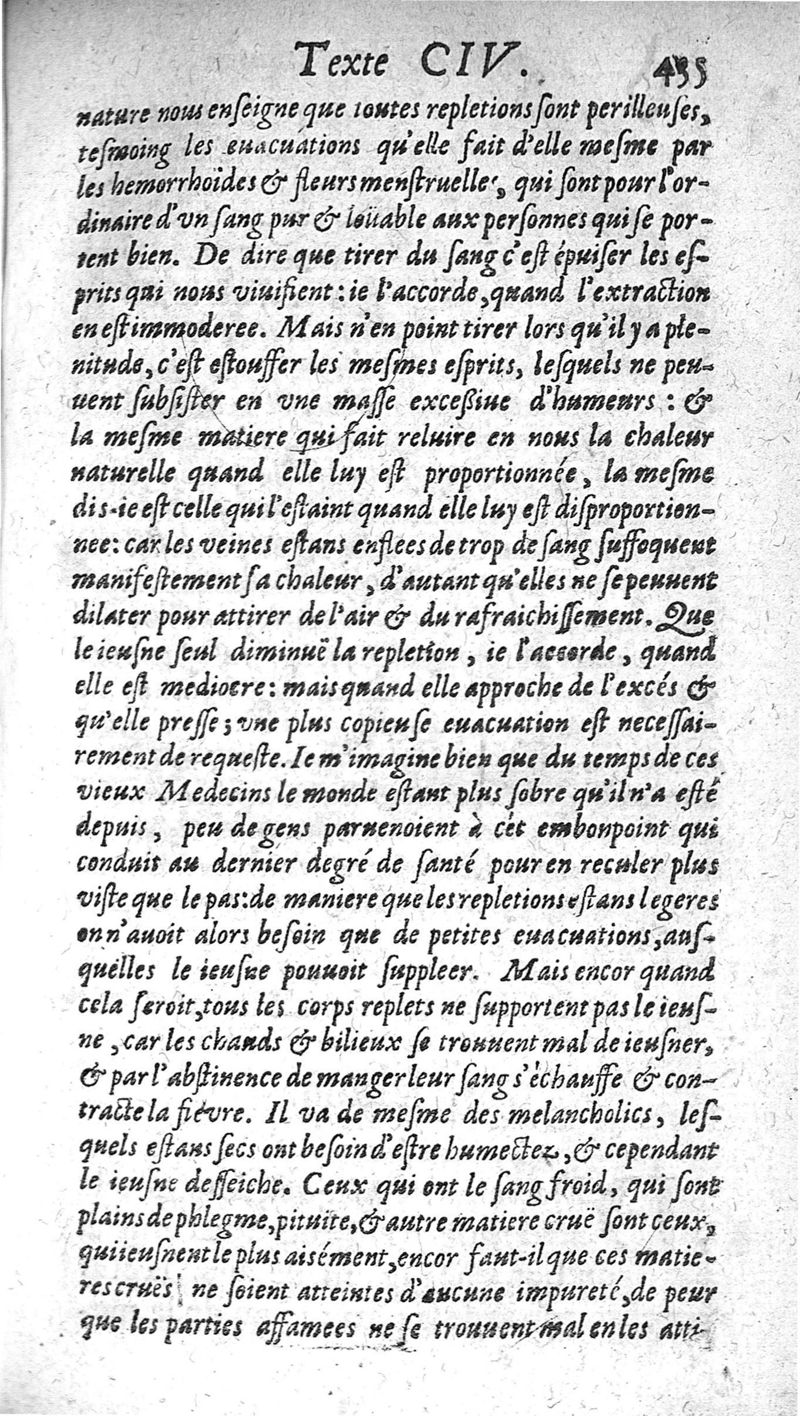 Texte CIV. 435
nature nous enſeigne que toutes repletions ſont perilleuſes,
teſmoing les euacuations qu'elle fait d'elle meſme par
les hemorrhoïdes & fleurs menſtruelles, qui ſont pour l'or-
dinaire d'vn ſang pur & loüable aux perſonnes qui ſe por-
tent bien. De dire que tirer du ſang c'eſt épuiſer les eſ-
prits qui nous viuifient: ie l'accorde, quand l'extraction
en eſt immoderee. Mais n'en point tirer lors qu'il y a ple-
nitude, c'eſt eſtouffer les meſmes eſprits, leſquels ne peu-
uent ſubſiſter en vne maſſe exceßiue d'humeurs : &
la meſme matiere qui fait reluire en nous la chaleur
naturelle quand elle luy eſt proportionnée, la meſme
dis-ie eſt celle qui l'eſtaint quand elle luy eſt diſproportion-
nee: car les veines eſtans enflees de trop de ſang ſuffoquent
manifeſtement ſa chaleur, d'autant qu'elles ne ſe peuuent
dilater pour attirer de l'air & du rafraichiſſement. Que
le ieuſne ſeul diminuë la repletion, ie l'accorde, quand
elle eſt mediocre: mais quand elle approche de l'excés &
qu'elle preſſe; vne plus copieuſe euacuation eſt neceſſai-
rement de requeſte. Ie m'imagine bien que du temps de ces
vieux Medecins le monde eſtant plus ſobre qu'il n'a eſté
depuis, peu de gens paruenoient à cét embonpoint qui
conduit au dernier degré de ſanté pour en reculer plus
viſte que le pas: de maniere que les repletions eſtans legeres
on n'auoit alors beſoin que de petites euacuations, auſ-
quelles le ieuſne pouuoit ſuppleer. Mais encor quand
cela ſeroit, tous les corps replets ne ſupportent pas le ieuſ-
ne, car les chauds & bilieux ſe trouuent mal de ieuſner,
& par l'abſtinence de manger leur ſang s'échauffe & con-
tracte la fiévre. Il va de meſme des melancholics, leſ-
quels eſtans ſecs ont beſoin d'eſtre humectez, & cependant
le ieuſne deſſeiche. Ceux qui ont le ſang froid, qui ſont
plains de phlegme, pituite, & autre matiere cruë ſont ceux,
qui ieuſnent le plus aisément, encor faut-il que ces matie-
res cruës ne ſoient atteintes d'aucune impureté, de peur
que les parties affamees ne ſe trouuent mal en les atti-